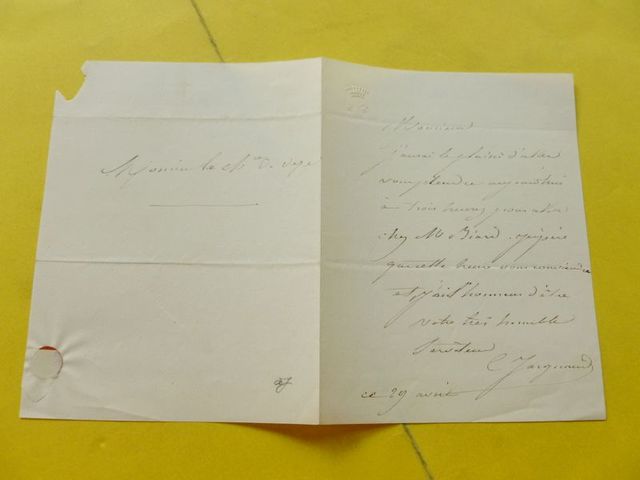 Monsieur le Ch.er de
Monsieur
J'aurai le plaisir d'aller
vous prendre aujourd'hui
à trois heures pour aller
chez Mr Biard. j'espère
que cette heure vous conviendra
et j'ai l'honneur d'être
votre très humble
Serviteur
C Jacquand
ce 29 avril